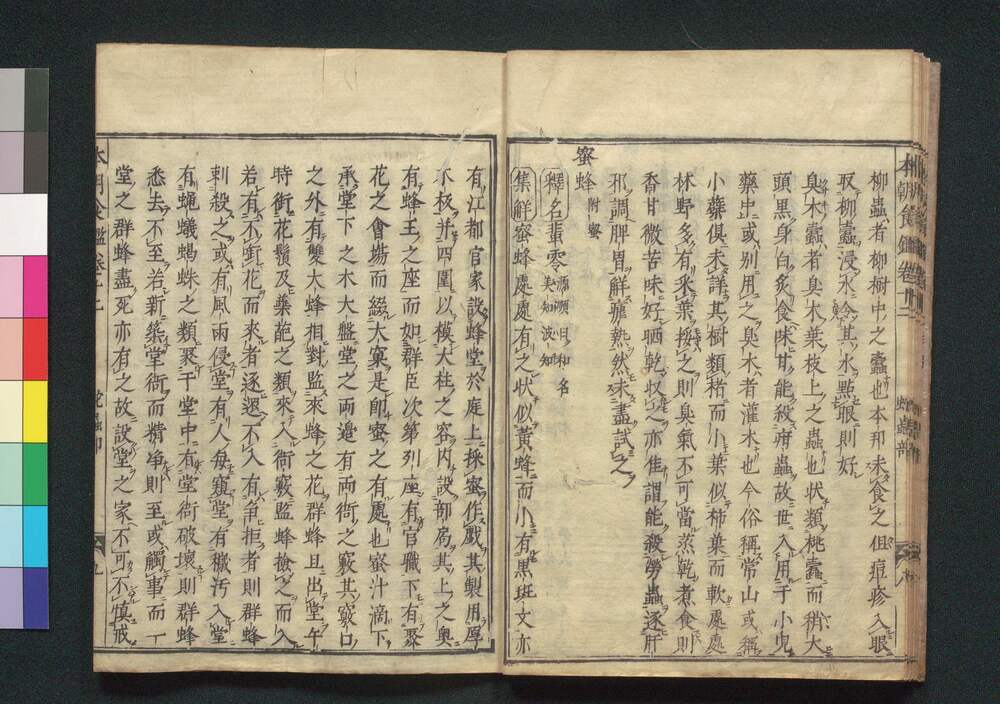 柳蟲者柳樹中之蠧也本邦未食之但痘疹入眼
取柳蠧浸水合其水點眼則好
臭木蠧者臭木葉枝上之蟲也狀類桃蠧而稍大
頭黒身白炙食味甘能殺疳蟲故世入用于小兒
藥中或別用之臭木者灌木也今俗稱常山或稱
小蘗俱未詳其樹類椿而小葉似柿葉而軟處處
林野多有采葉挼之則臭氣不可當蒸乾煮食則
香甘微苦味好晒乾収之亦佳謂能殺勞蟲逐肝
邪調脾胃解瘧熱然未盡試之
蜜蜂 附蜜
釋名 蜚零 源順曰和名美知波知
集解 蜜蜂處處有之狀似黃蜂而小有黒斑文亦
有江都官家設蜂堂於庭上採蜜作戲其製用厚
木板并四圍以模大柱之容内設部局其上之奥
有蜂王之座而如群臣次第列座有官職下有聚
花之會場而綴大窠是即蜜之有處也蜜汁滴下
承堂下之木大盤堂之兩邉有兩衙之竅其竅口
之外有雙大蜂相對監來蜂之花群蜂且出堂午
時銜花鬚及藥葩之類來入衙竅監蜂撿之而入
若有不銜花而來者逐還不入有争拒者則群蜂
刺殺之或有風雨侵堂有人毎窺堂有穢汚入堂
有蝿蟻蝎蛛之類聚于堂中有堂衙破壞則群蜂
悉去不至若新築堂衙而精浄則至或觸事而一
堂之群蜂盡死亦有之故設堂之家不可不慎戒
本朝食鑑卷十二
九